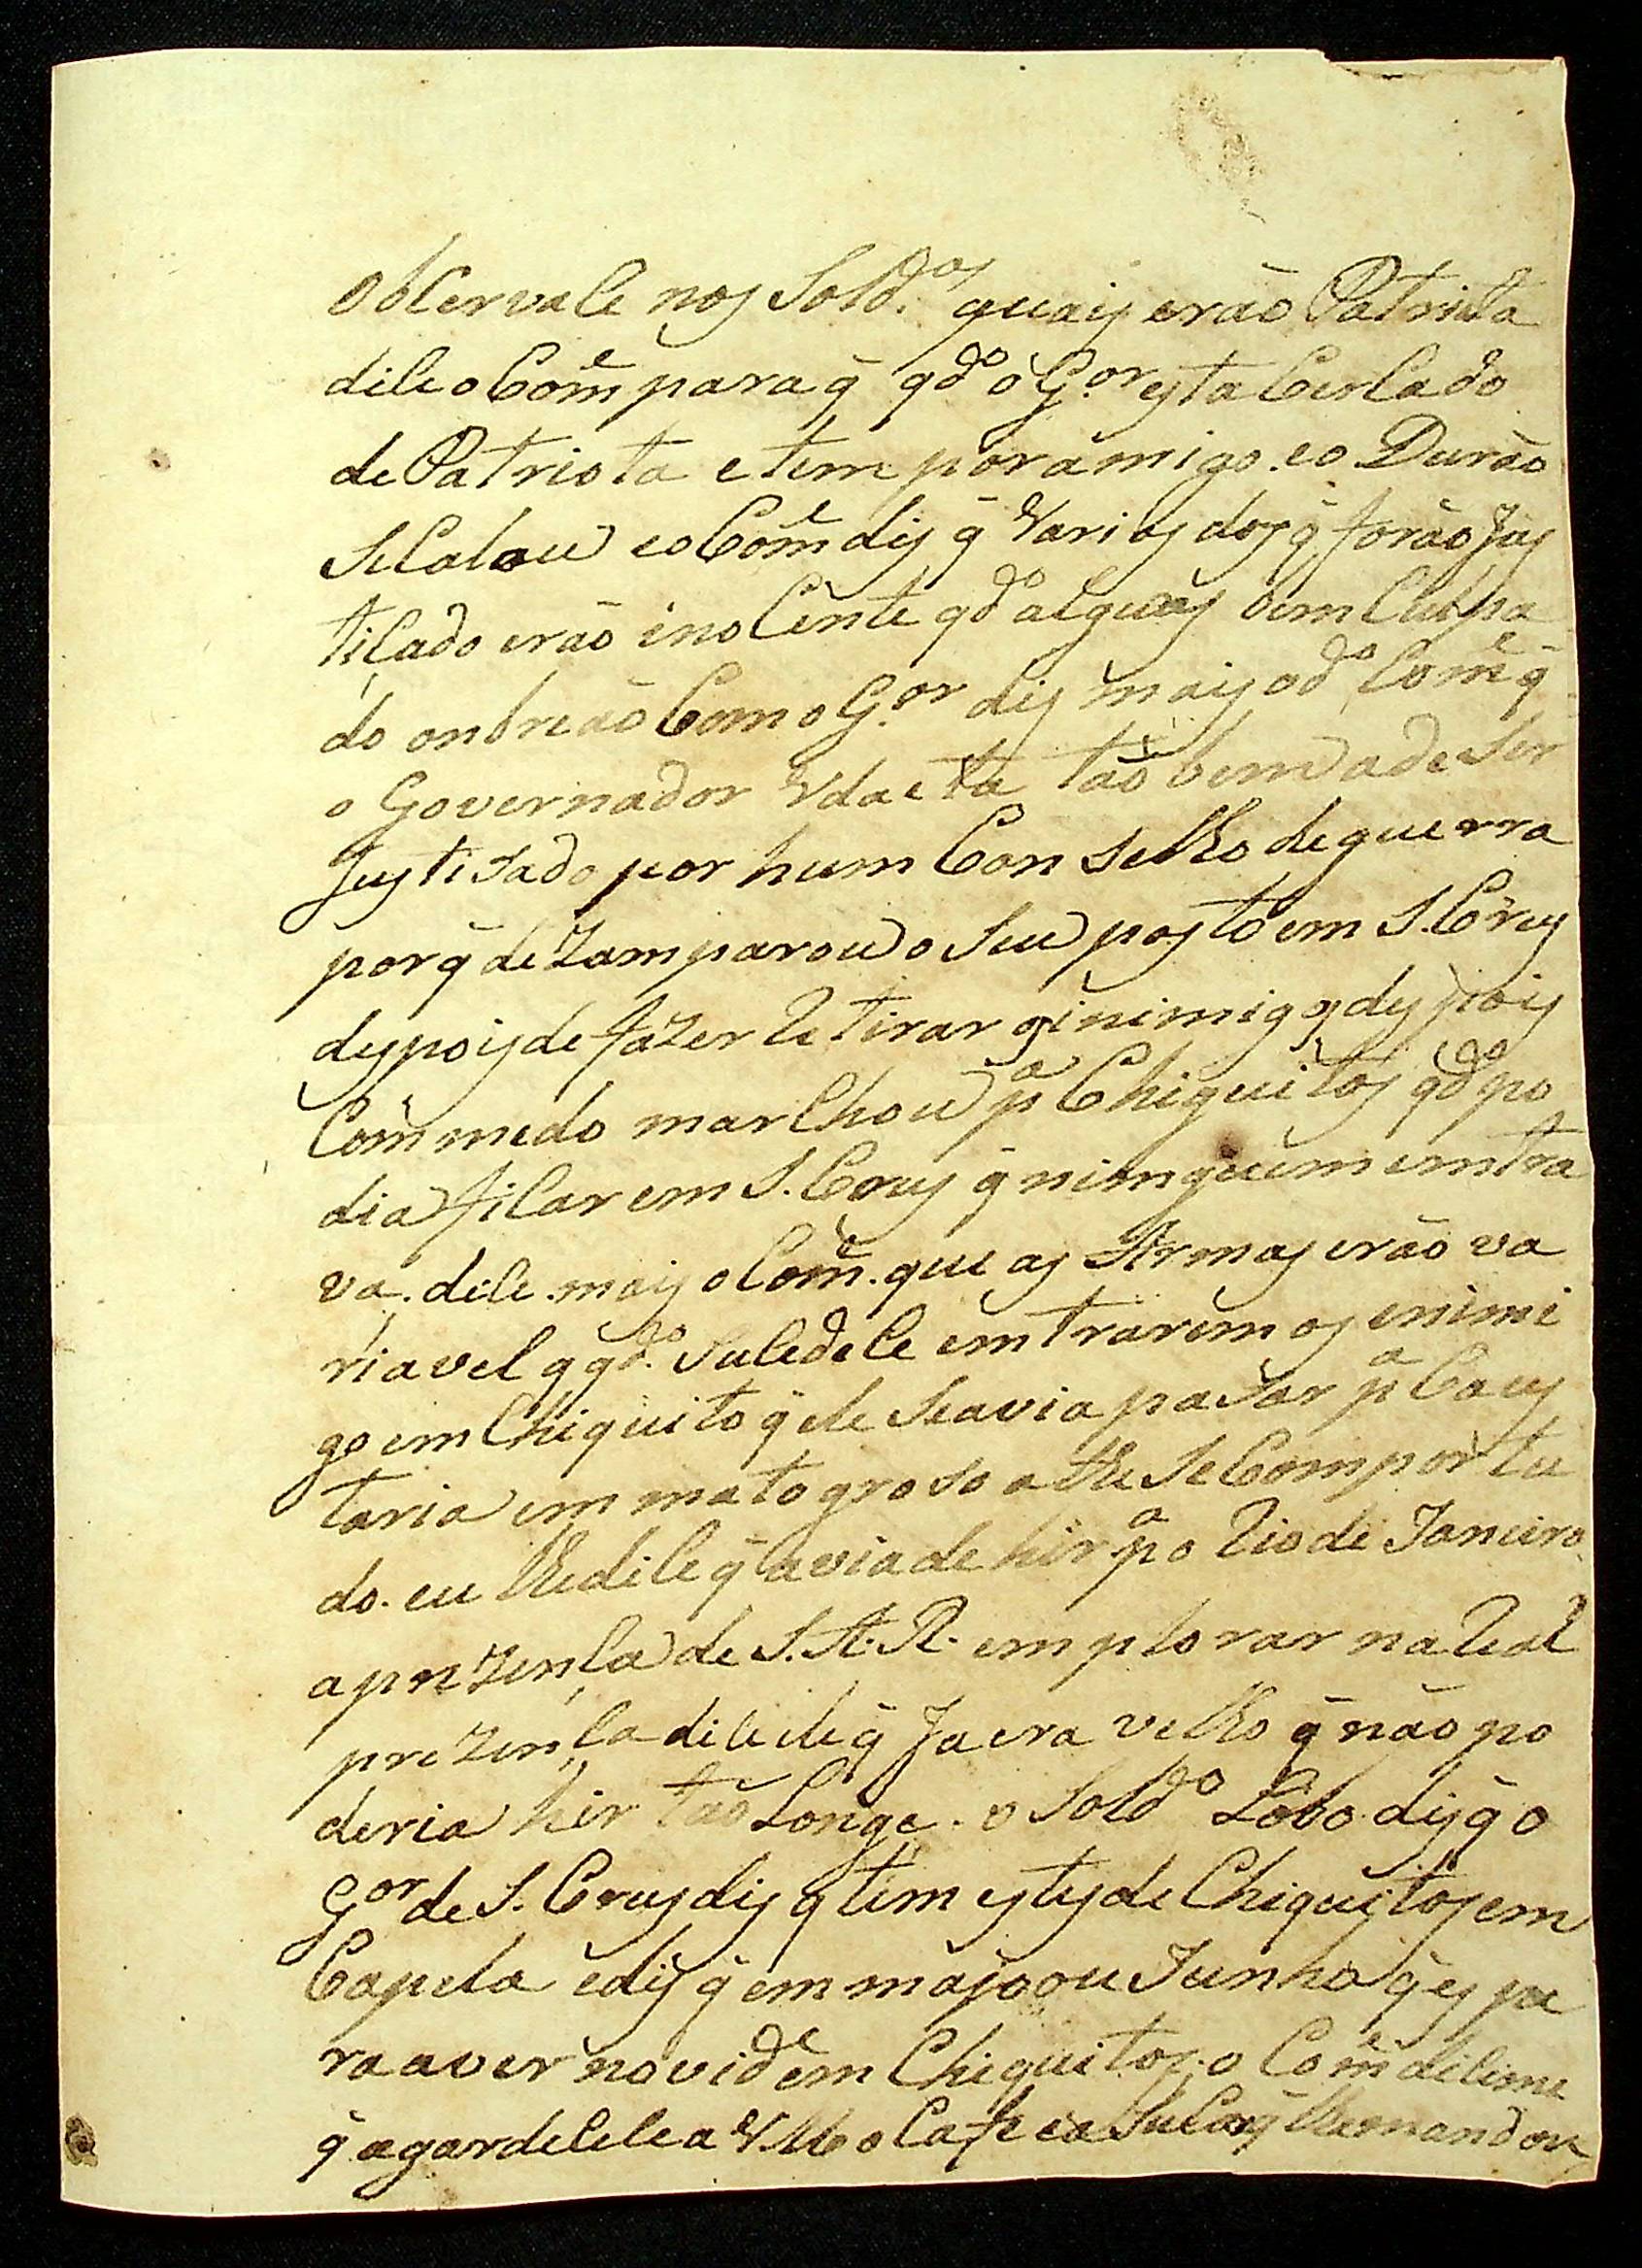 obcervace nos Sold.os quais erão Patriota
dice o Com.e para q̃ qd.o o G.or esta Cercado
de Patriota e tem por amigo. e o Durão
Se Calou e o Com.e dis q̃ Varios dos q̃ forão Jus
ticado erão inoCente qd.o alguns bem Culpa
do onbreão Com o G.or dis mais o d.o Com.e q̃
o Governador Vdaeta tão bem ade Ser
Justisado por hum Conselho de guerra
por q̃ dezamparou o Seu posto em S. Crus
dispois de fazer Retirar os inimigos dispois
Com medo marchou p.a Chiquitos qd.o po
dia ficar em S. Crus q̃ nimguem emtra
va. dice. mais o Com.e que as Armas erão va
riavel q̃ qd.o Sucedece emtrarem os enimi
go em Chiquito q̃ ele Se avia pasar p.a Cacas
taria em mato groso a Se Comportu
do. eu lhe dice q̃ avia de hir p.a o Rio de Janeiro
aprezenca de S. A. R. emplorar na Real
prezenca dice ele q̃ Ja era velho q̃ não po
deria hir tão Longe. o Sold.o Lobo dis q̃ o
G.or de S. Crus dis q̃ tem estes de Chiquitos em
Capela e dis q̃ em majo ou Junho q̃ espe
ra aver novid.e em Chiquitos. o Com.e diceme
q̃ agardecece a VM.e o Cafe